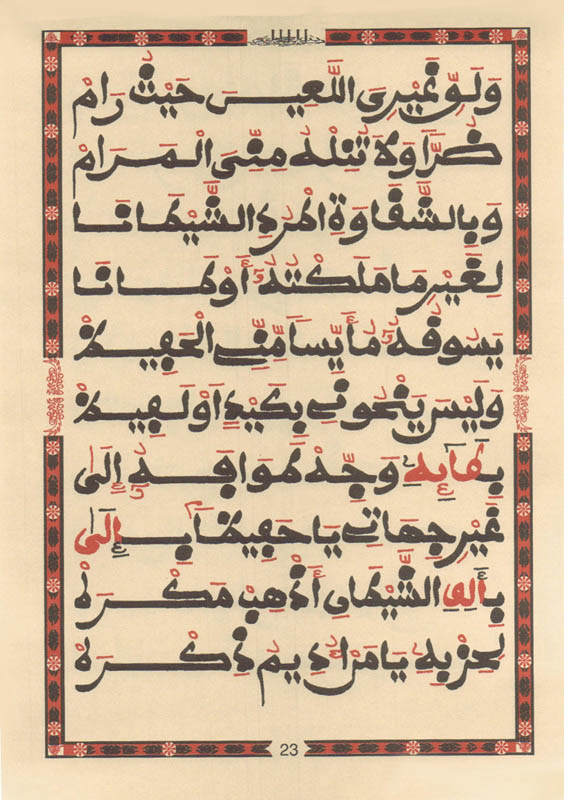 وَلَوِّ غَيْرِيَ اللَّعِينَ حَيْثُ رَامْ
ضُرًّا وَلَا تُنِلْهُ مِنِّيَ الْمَرَامْ
وَبِالشَّقَاوَةِ اطْرُدِ الشَّيْطَانَا
لِغَيْرِ مَا مَلَكْتُهُ أَوْطَانَا
يَسُوقُهُ مُأَيَّسًا مِنِّي الْحَفِيظْ
وَلَيْسَ يَنْحُونِي بِكَيْدٍ أَوْ لَفِيظْ
بِطَائِهِ وَجِّهْ طَوَافَهُ إِلَى
غَيْرِ جِهَاتِي يَا حَفِيظًا بِإِلَى
بِأَلِفِ الشَّيْطَانِ أَذْهِبْ مَكْرَهُ
لِحِزْبِهِ يَا مَنْ أُدِيمُ ذِكْرَهُ
23